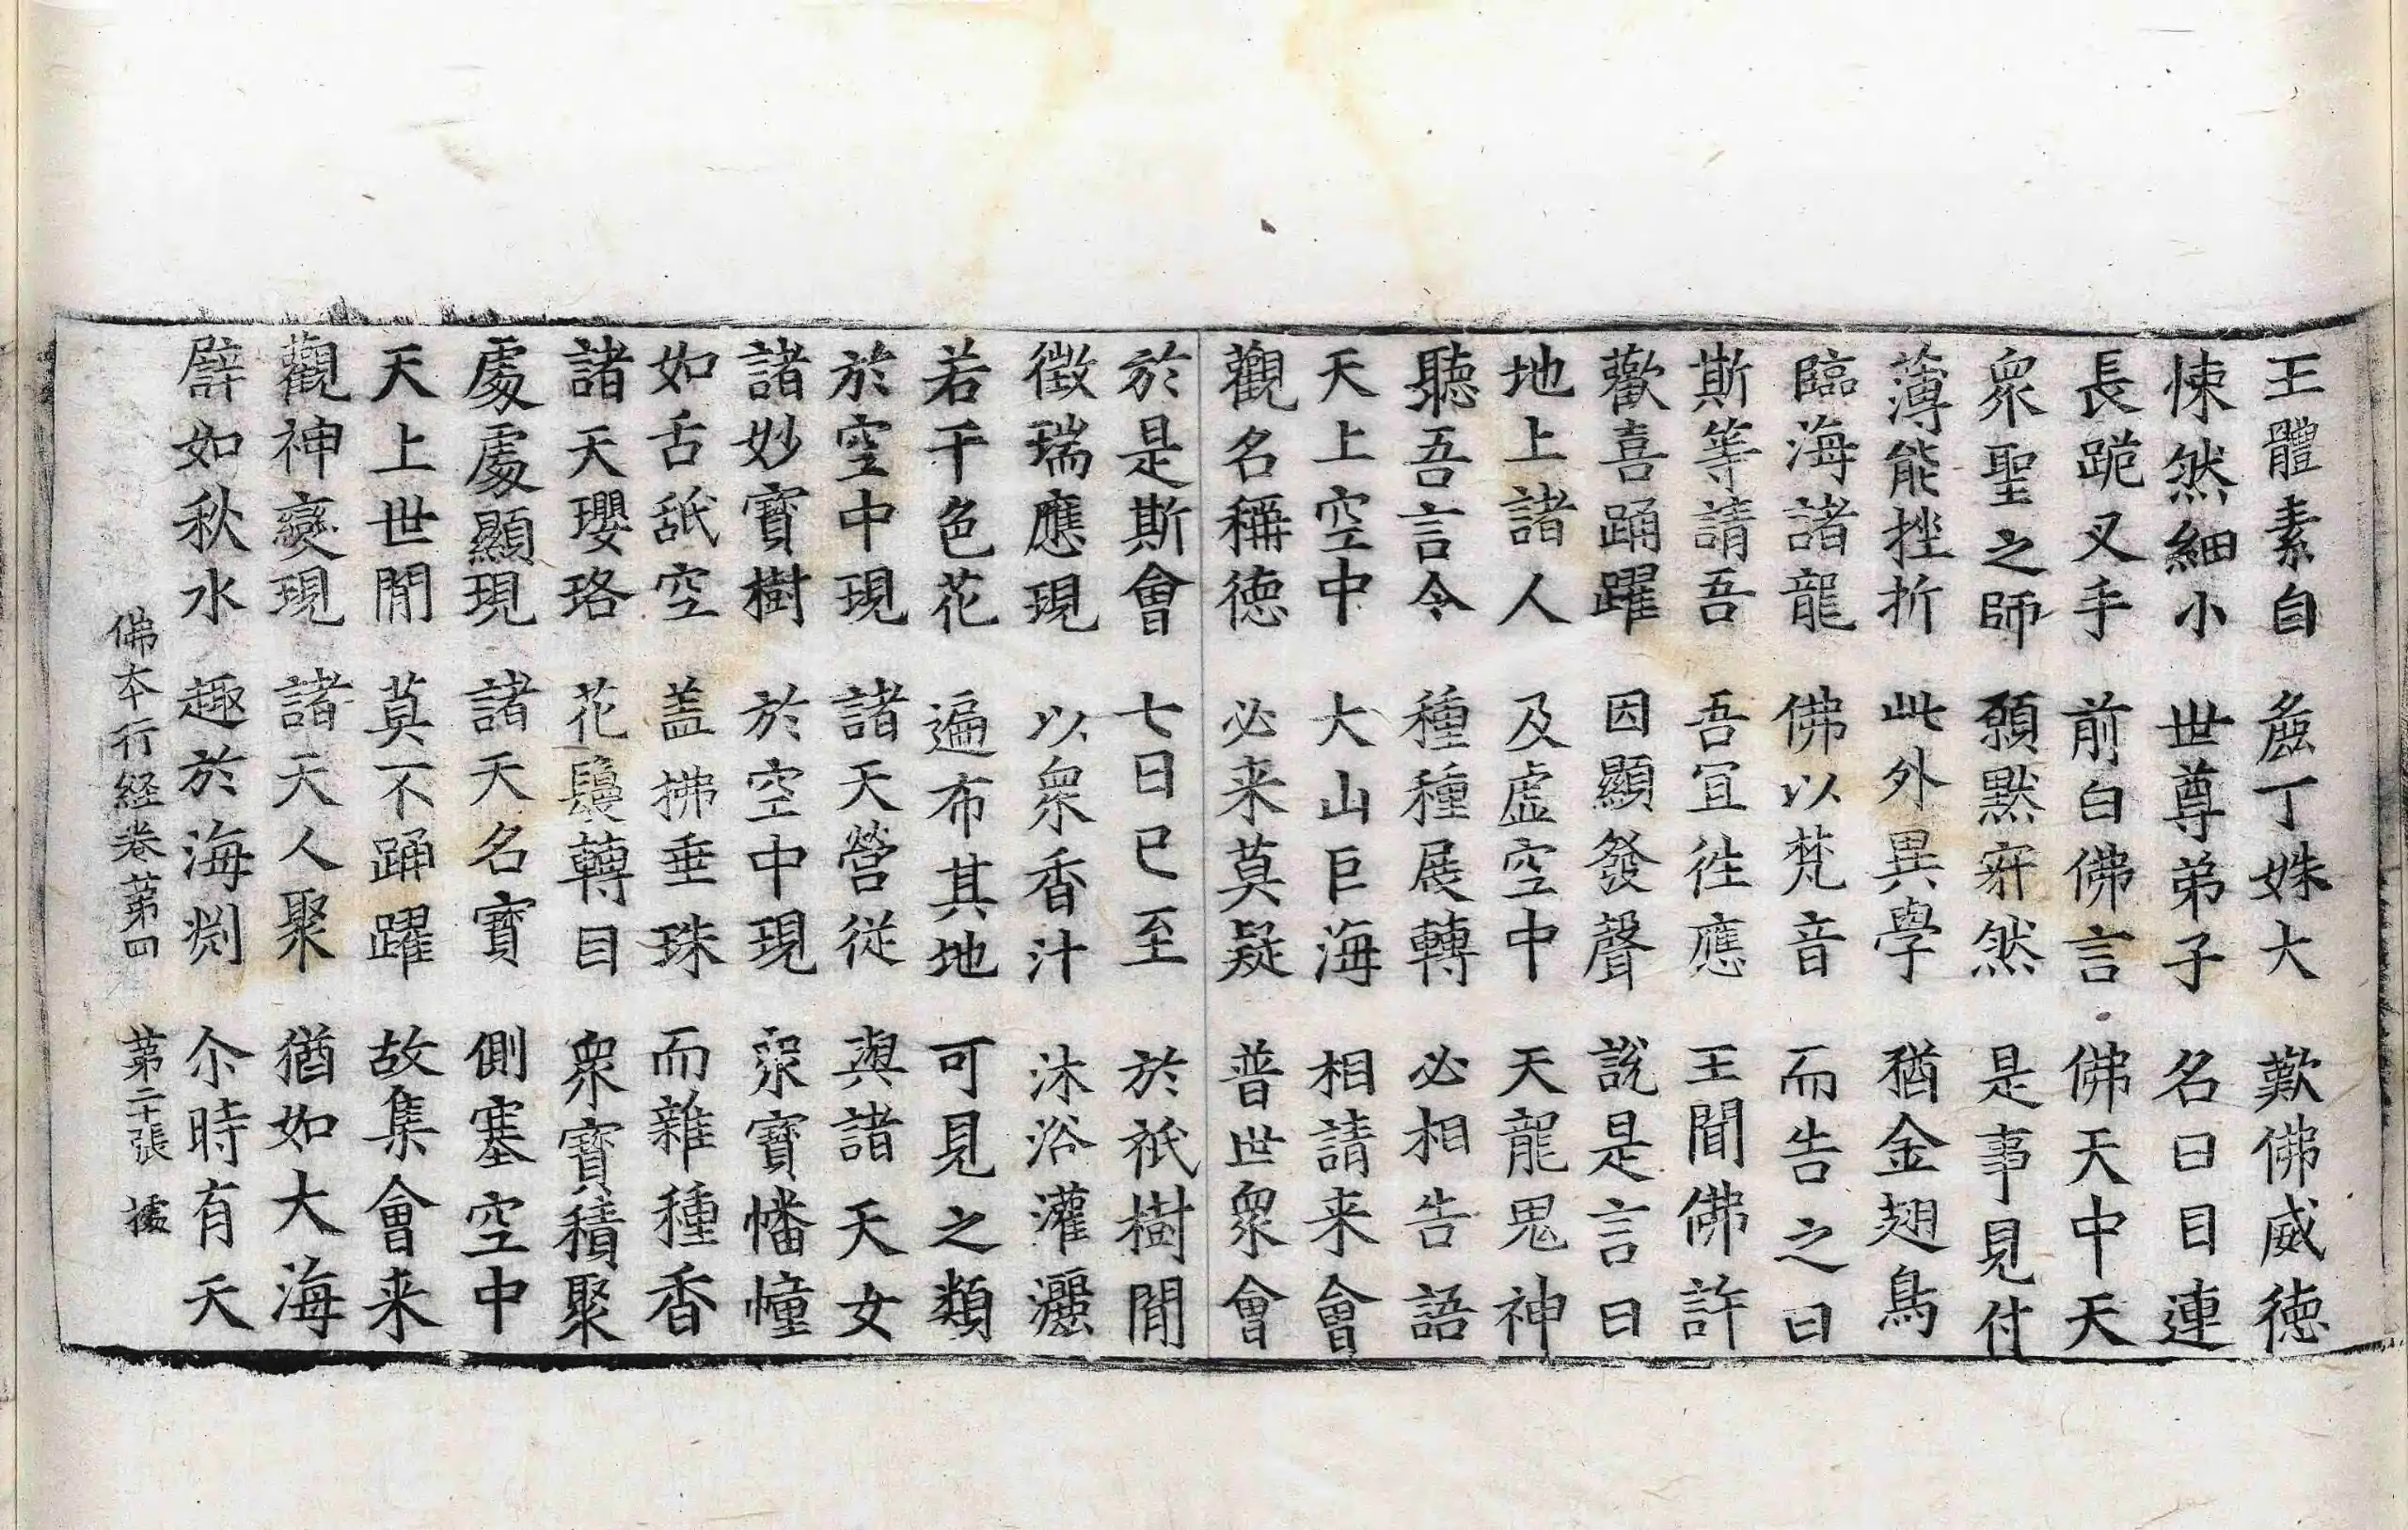 王體素自麁丁姝大歎佛威徳
悚然細小世尊弟子名曰目連
長跪叉手前白佛言佛天中天
衆聖之師願默寂然是事見付
薄能挫折此外異學猶金翅鳥
臨海諸龍佛以梵音而告之曰
斯等請吾吾宜往應王聞佛許
歡喜踊躍因顯發聲說是言曰
地上諸人及虛空中天龍鬼神
聽吾言令種種展轉必相告語
天上空中大山巨海相請来會
觀名稱徳必来莫疑普世衆會
於是斯會七日已至於祇樹閒
徵瑞應現以衆香汁沐浴灌灑
若干色花遍布其地可見之類
於空中現諸天營從與諸天女
諸妙寶樹於空中現衆寶幡幢
如舌舐空盖拂垂珠而雜種香
諸天瓔珞花鬘轉目衆寶積聚
處處顯現諸天名寶側塞空中
天上世閒莫不踊躍故集會来
觀神變現諸天人聚猶如大海
譬如秋水趣於海渕尒時有天
佛本行経卷苐四 苐二十張 據